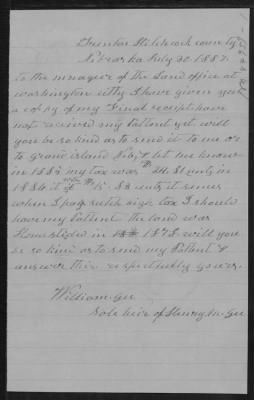 Trenton Hitchcock county
Nebraska July 20. 1887.
to the mnager of the Land office at
washington citty I have given you
a copy of my Final receipt have
not recived my Pattent yet will
you be so kind as to send it to me or
to grand island Neb, & let me know
in 1885 my tax was $ 24. 81 cnts in
1886 it was $ 15. 83 cnts it semes
when I pay sutch high tax I should
have my Pattent the land was
Homesteded in 1878 will you
be so kind as to send my Patent &
answer this respectfully yours.
William Gee
Sole heir of Henry M. Gee